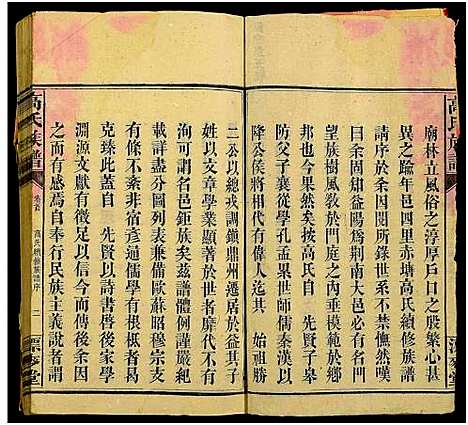 廟林立風俗之淳厚戶口之殷繁心甚
異之踰年邑四里赤塘高氏續修族譜
請序於余因閱所錄世系示余憮然嘆
曰余固知益陽爲荆南大邑必有名門
望族樹風敎於門庭之內垂模範於鄉
邦也今果然矣按高氏自　先賢子羔
防父子襄與修孔孟學仕師世系詳明
降公侯將相代有偉人迄其　始祖勝
二公以總戎調鎭鼎州遷居於益其子
姓以文章學業顯著於世者靡代不有
洵可謂名邑鉅族矣玆譜體例謹嚴紀
載詳盡分圖列表兼備歐蘇昭穆宗支
有條不紊非宿彥通儒學有根柢者曷
克臻此異　先賢以詩書啓後令家學
淵源文獻有徵足以信今而傳後余因
之而有感焉自奉行民族主義說者謂
高氏族譜
卷首
高氏續修族譜序
二
高氏族譜